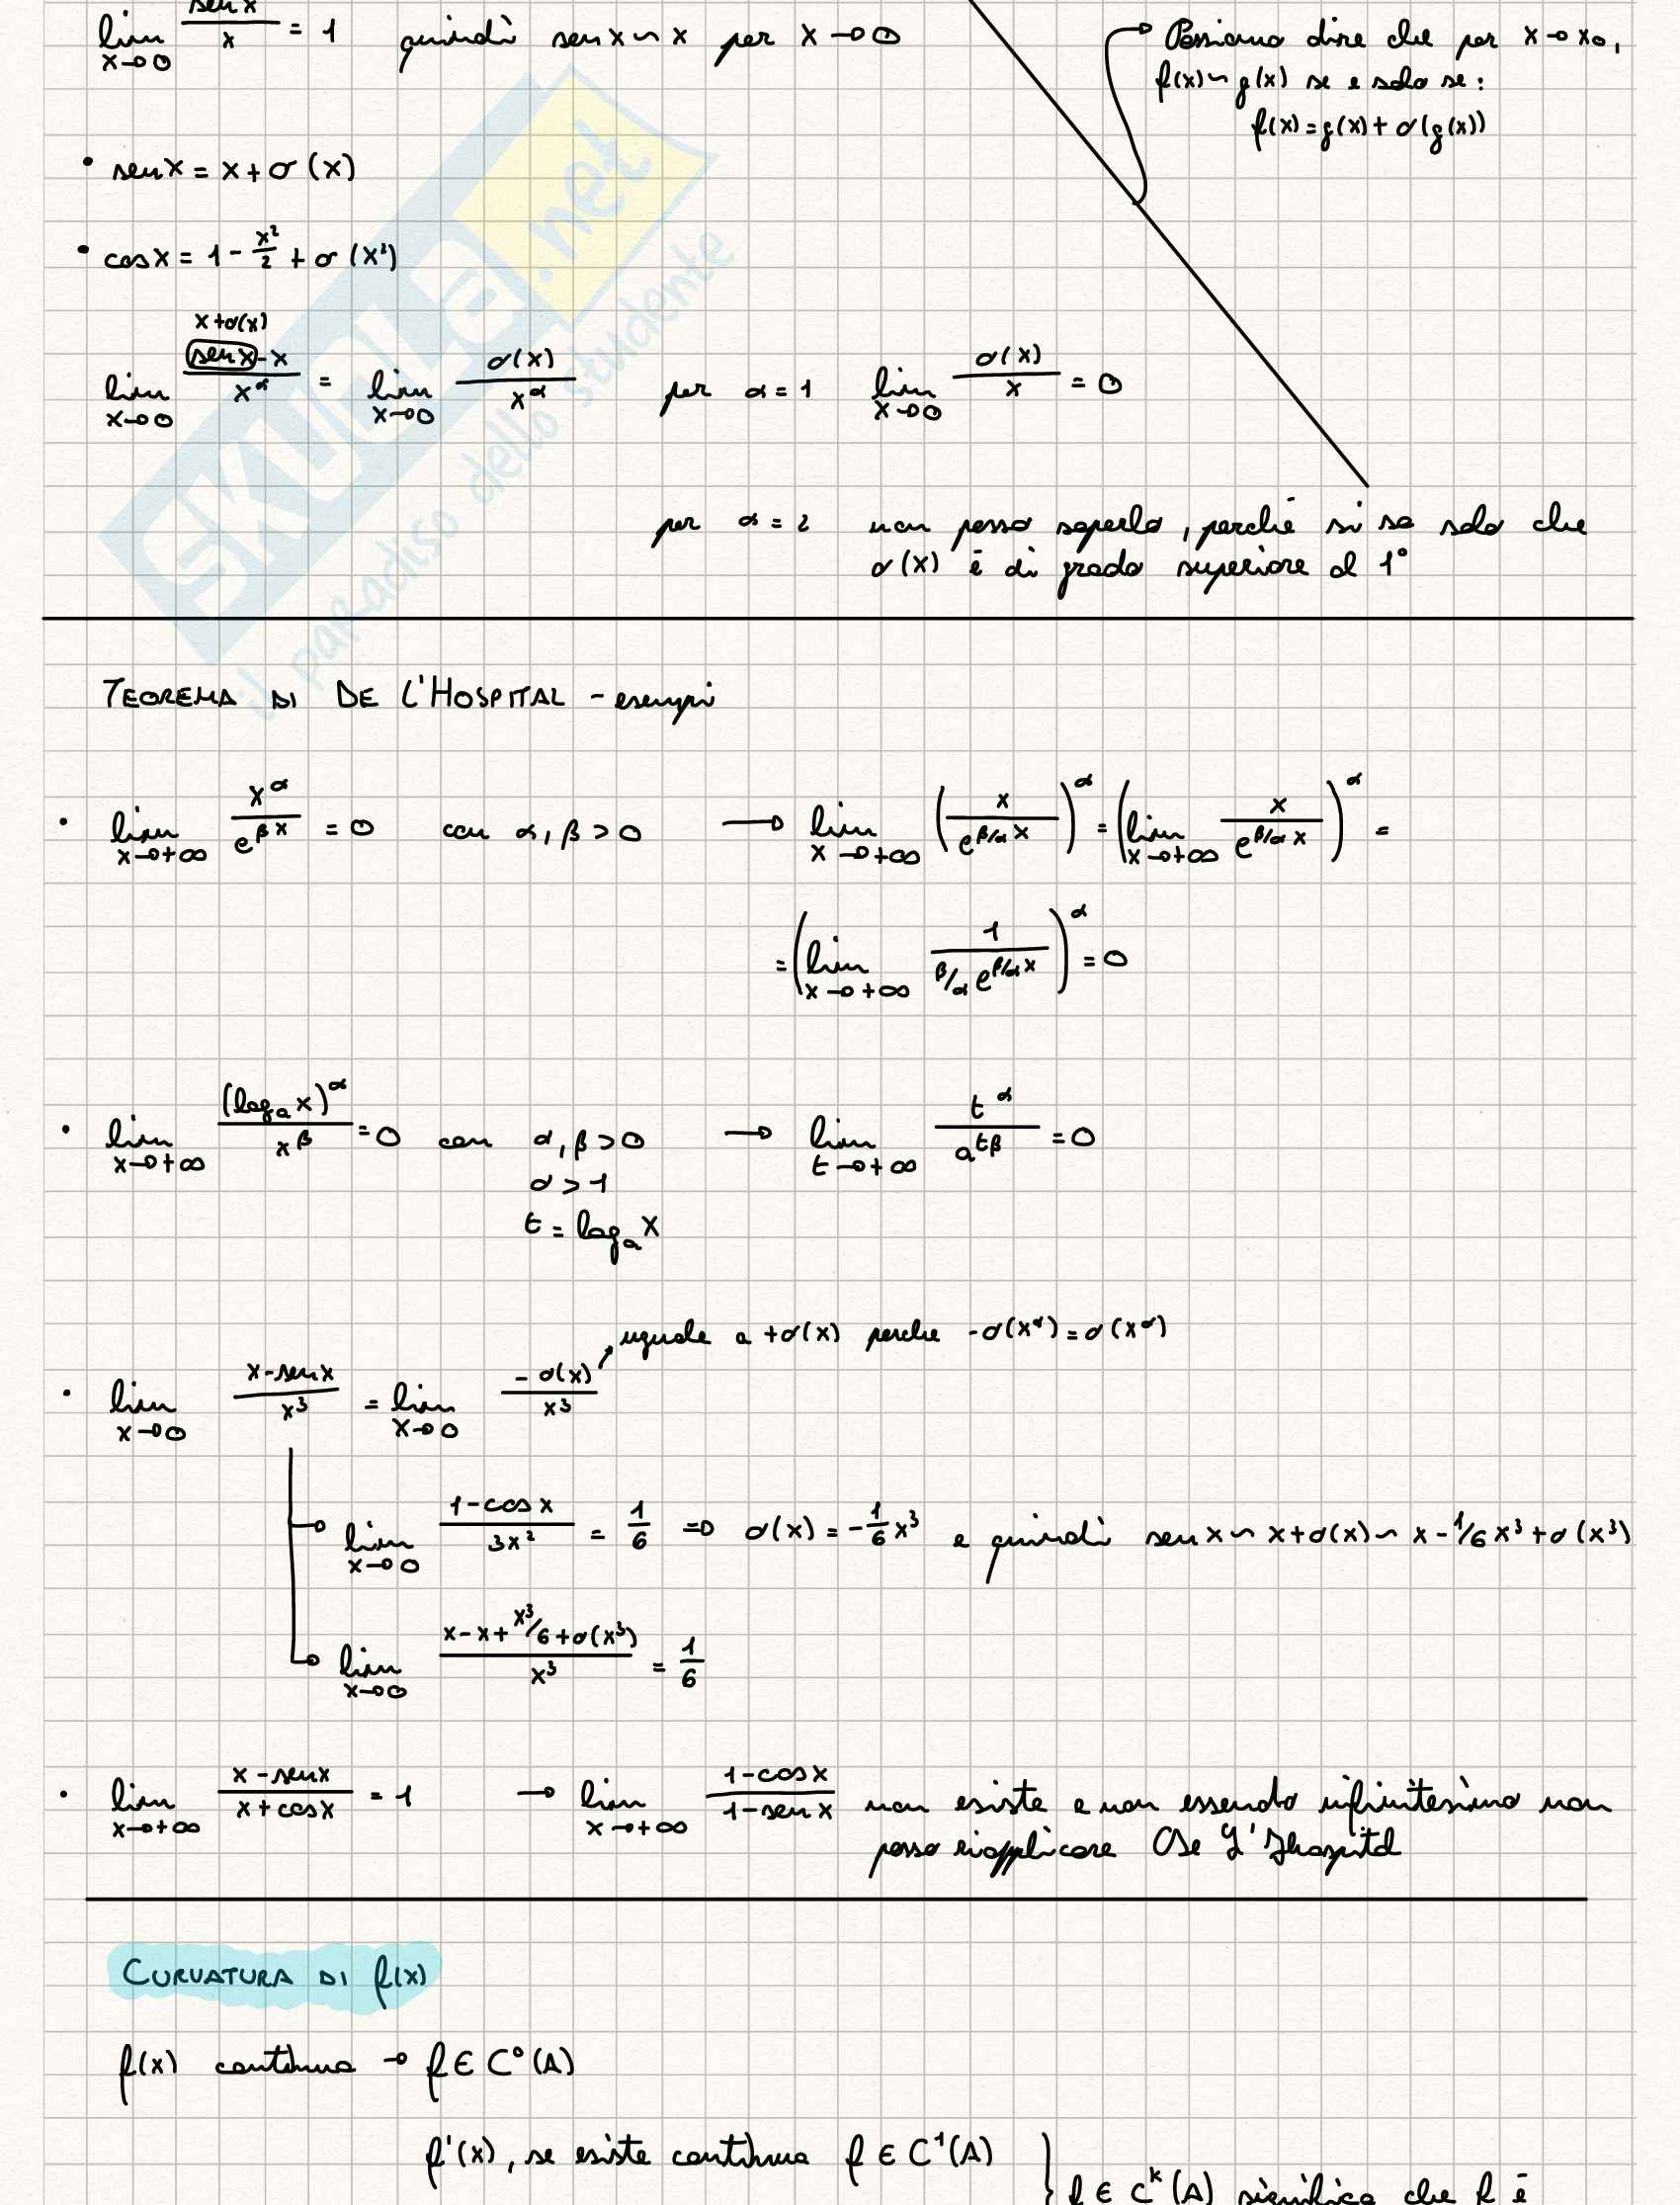 lim x→0 sen x / x = 1 quindi sen x ~ x per x→0
Possiamo dire che per x→x₀,
f(x) ~ g(x) se e solo se:
f(x) = g(x) + o(g(x))
• sen x = x + o(x)
• cos x = 1 - x²/2 + o(x²)
x + o(x)
lim x→0 (sen x - x)/x^α = lim x→0 o(x)/x^α per α = 1 lim x→0 o(x)/x = 0
per α = 2 non posso saperlo, perché si sa solo che
o(x) è di grado superiore al 1°
TEOREMA DI DE L'HOSPITAL - esempi
• lim x→+∞ x^α / e^(βx) = 0 con α, β > 0 → lim x→+∞ (x / e^(β/α x))^α = (lim x→+∞ x / e^(β/α x))^α =
= (lim x→+∞ 1 / (β/α e^(β/α x)))^α = 0
• lim x→+∞ (log_a x)^α / x^β = 0 con α, β > 0 → lim t→+∞ t^α / a^(tβ) = 0
α > 1
t = log_a x
uguale a +o(x) perche -o(x^α) = o(x^α)
• lim x→0 (x - sen x)/x³ = lim x→0 -o(x)/x³
lim x→0 (1 - cos x)/3x² = 1/6 ⇒ o(x) = -1/6 x³ e quindi sen x ~ x + o(x) ~ x - 1/6 x³ + o(x³)
lim x→0 (x - x + x³/6 + o(x³))/x³ = 1/6
• lim x→+∞ (x - sen x)/(x + cos x) = 1 → lim x→+∞ (1 - cos x)/(1 - sen x) non esiste e non essendo infinitesimo non
posso riapplicare De L'Hospital
CURVATURA DI f(x)
f(x) continua → f ∈ C°(A)
f'(x), se esiste continua f ∈ C¹(A)
f ∈ C^k(A) significa che f è
SKUOLA.net
il paradiso dello studente